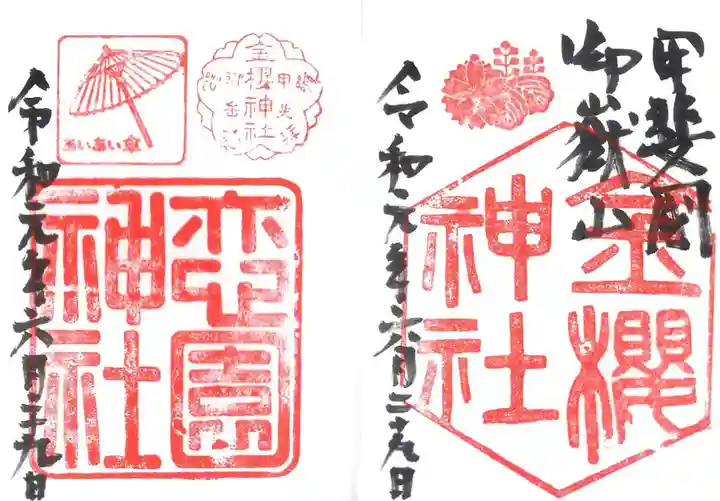 甲斐国
御嶽山
金櫻
神社
令和元年六月二十九日
金櫻神社
甲斐
御岳
あいあい傘
園
神社
令和元年六月二十九日